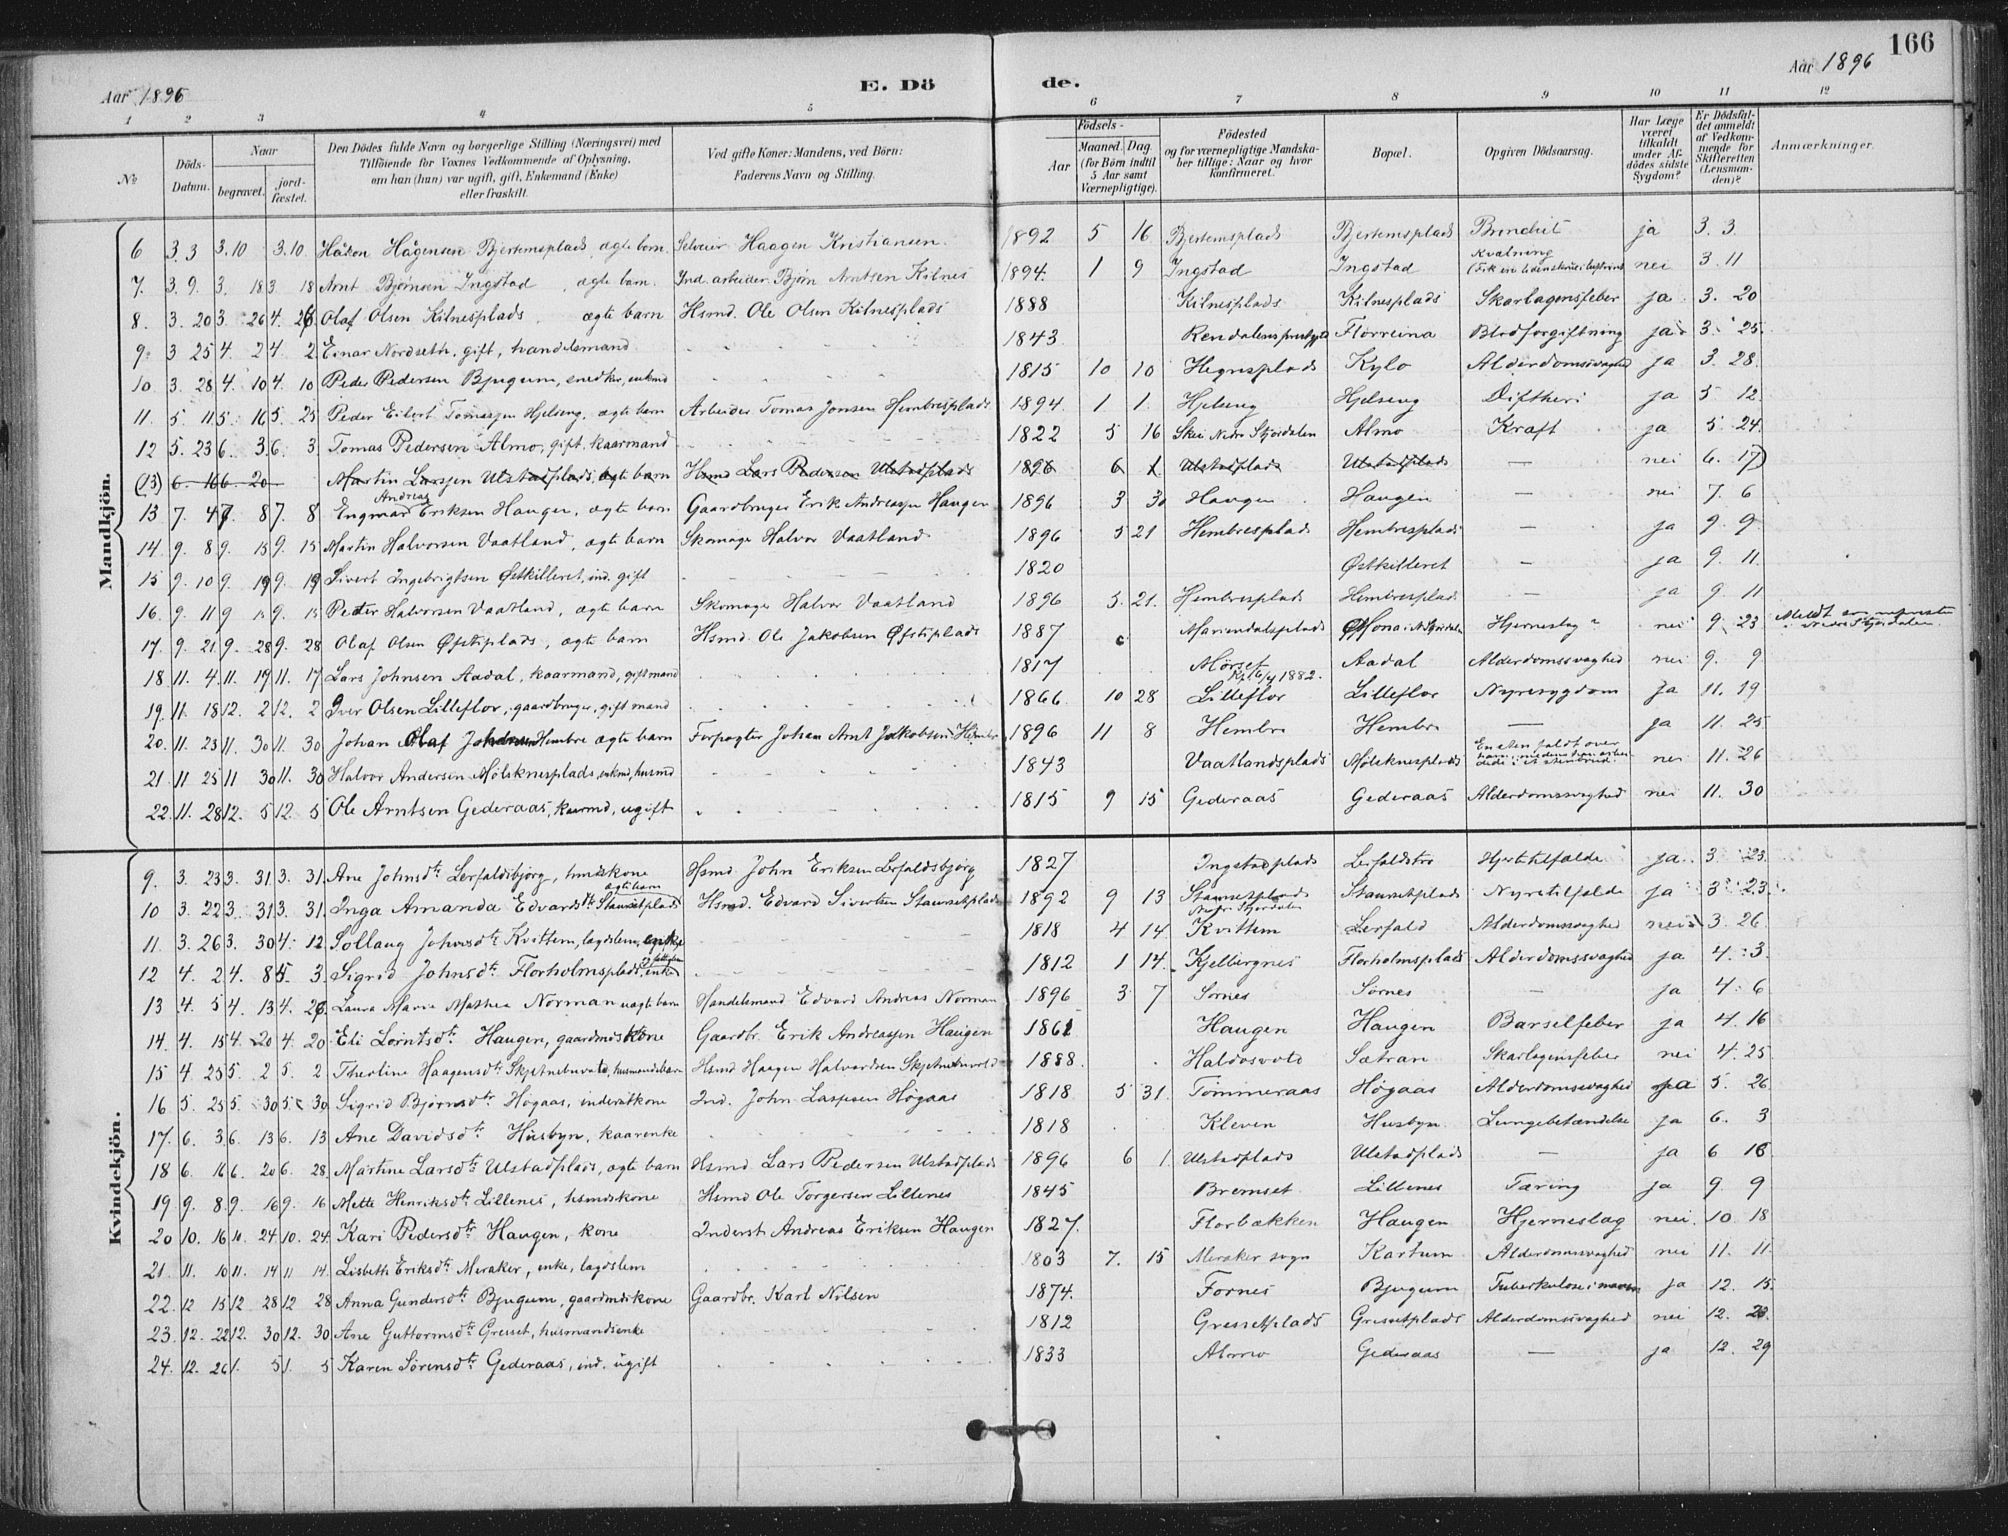 166
Aar 1896
E. Döde.
Aar 1896
1 2 3 4 5 6 7 8 9 10 11 12
№
Döds-Datum.
Naar
begravet.
jord-fæstet.
Den Dödes fulde Navn og borgerlige Stilling (Næringsvei) med
Tilföiende for Voxnes Vedkommende af Oplysning,
om han (hun) var ugift, gift, Enkemand (Enke)
eller fraskilt.
Ved gifte Koner: Mandens, ved Börn:
Faderens Navn og Stilling.
Födsels-
Aar
Maaned. Dag
(for Börn indtil
5 Aar samt
Værnepligtige).
Födested
og for værnepligtige Mandska-
ber tillige: Naar og hvor
Konfirmeret.
Bopæl.
Opgiven Dödsaarsag.
Har Læge
været
tilkaldt
under Af-
dödes sidste
Sygdom?
Er Dödsfal-
det anmeldt
af Vedkom-
mende for
Skifteretten
(Lensman-
den)?
Anmærkninger.
Mandkjön.
6 3. 3 3. 10 3. 10. Håkon Hågensen Bjertemsplads, ægte barn. Selveier Haagen Kristiansen 1892 5 16 Bjertemsplads Bjertemsplads Bronchit ja 3. 3.
7. 3. 9. 3. 18 3 18 Arnt Bjørnsen Ingstad, ægte barn. Ind. arbeider Bjørn Arntsen Kilnes 1894. 1 9 Ingstad Ingstad Kvælning nei 3. 11
8. 3. 20 3. 26 4. 26 Olaf Olsen Kilnesplads. ægte barn Hsmd. Ole Olsen Kilnesplads 1888 Kilnesplads Kilnesplads Skarlagensfeber ja 3. 20
9. 3 25 4. 2 4. 2 Einar Nordseth, gift, handelsmand 1843 Flornina Blodforgiftning ja 3. 25.
10. 3. 28 4. 10 4. 10 Peder Pedersen Bjugum, snedker, enkmd 1815 10 10 Hegresplads Kylo Alderdomssvaghed ja 3. 28.
11. 5. 11 5. 16 5. 25 Peder Eilert Tomassen Hjelseng, ægte barn Arbeider Tomas Jonsen Hembresplads 1894. 1 1. Hjelseng Hjelseng Diftheri ja 5 12.
12 5. 23 6. 3 6. 3 Tomas Pedersen Almo, gift, kaarmand 1822 5 16 Skei Nedre Stjørdalen Almo Kraft ja 5. 24.
(13) 6. 16 6. 20 Martin Larssen Ulstadplads, ægte barn Hsmd Lars Pedersen Ulstadplads 1896 6 1 Ulstadplads Ulstadplads — nei 6. 17)
13 7. 4 7. 8 7. 8 Engmar Andreas Eriksen Haugen, ægte barn Gaardbruger Erik Andreassen Haugen 1896 3 30 Haugen Haugen — nei 7. 6
14. 9. 8 9. 15 9. 15 Martin Halvorsen Vaatland, ægte barn Skomager Halvor Vaatland 1896 5 21 Hembresplads Hembresplads — ja 9. 9
15 9. 10 9. 19 9. 19 Sivert Ingebrigtsen Østkilleret, ind. gift 1820 Østkilleret — ja 9. 11.
16. 9. 11 9 15 9. 15 Peder Halvorsen Vaatland, ægte barn Skomager Halvor Vaatland 1896 5. 21. Hembresplads Hembresplads — ja 9. 11
17. 9. 21 9. 28 9. 28 Olaf Olsen Øfstiplads, ægte barn Hsmd. Ole Jakobsen Øfstiplads 1887 Mariendalsplads Hona i N. Stjørdalen Hjerneslag nei 9. 23 Meldt Nedre Stjørdalen.
18 11. 4. 11. 17 11. 17 Lars Johnsen Aadal, kaarmand, gift mand 1817 Mørset Aadal Alderdomssvaghed nei 9. 9
19. 11. 18 12. 2 12. 2 Iver Olsen Lilleflor, gaardbruger, gift mand 1866. 10 28 Kf. 16/4 1882. Lilleflor Lilleflor Nyresygdom ja 11. 19
20. 11. 23 11. 30 11. 30 Johan Olaf Hembre ægte barn Forpagter Johan Arnt Jakobsen Hembre 1896 11 8 Hembre Hembre — ja 11. 25
21. 11 25 11 30 11. 30 Halvor Andersen Mølsknesplads, enkmd, husmd 1843 Vaatlandsplads Mølsknesplads En sten faldt over ham medens han arbeidede i et stenbrud nei 11. 26
22. 11. 28 12. 5 12. 5 Ole Arntsen Gederaas, kaarmd, ugift 1815 9 15 Gederaas Gederaas Alderdomssvaghed nei 11. 30
Kvindekjön.
9. 3. 23 3. 31 3. 31. Ane Johnsdtr Lerfaldsbjørg, hmdskone Hsmd John Eriksen Lerfaldsbjørg 1827 Ingstadplads Leifaldstrø Hjertetilfælde ja. 3 23.
10 3. 22 3. 31 3. 31. Inga Amanda Edvardsdtr Stamsetplads ægte barn Hsmd. Edvard Sivertsen Stamsetplads 1892 9 13 Stamsetplads Stamsetplads Nyretilfælde ja 3. 23.
11. 3. 26 3. 30 4. 12 Sollaug Johnsdtr Kvittem, lægdslem, enke 1818 4 14. Nedre Stjørdalen Kvittem Lerfald Alderdomssvaghed nei 3. 26
12 4. 2 4. 8 5. 3. Sigrid Johnsdtr Florholmsplads, enke 1812 1 14. Kjelbergnes Florholmsplads Alderdomssvaghed ja 4. 3.
13 4. 5 4. 13 4. 26. Laura Marie Mathea Norman uægte barn Handelsmand Edvard Andreas Norman 1896 3 7 Sørnes Sørnes — ja 4. 6
14. 4. 15 4. 20 4. 20. Eli Lorntsdtr Haugen, gaardmdskone Gaardbr. Erik Andreassen Haugen 1861 Haugen Haugen Barselfeber ja 4. 16
15 4. 25 5. 2 5. 2 Theoline Haagensdtr Skjetnebuvold, husmandsbarn Hsmd Haagen Halvardsen Skjetnebuvold 1888. Haldosvold Sætran Skarlagensfeber nei 4. 25
16 5. 25 5. 30 5. 30 Sigrid Bjørnsdtr Høgaas, inderstkone Ind. John Laspesen Høgaas 1818 5 31. Tømmeraas Høgaas Alderdomssvaghed ja 5. 26
17. 6. 3 6. 13 6. 13 Ane Davidsdtr Husbyn, kaarenke 1818 Kleven Husbyn Lungebetændelse ja 6. 3
18 6. 16 6. 20 6. 28 Martine Larsdtr Ulstadplads, ægte barn Hsmd Lars Pedersen Ulstadplads 1896 6 1. Ulstadplads Ulstadplads — ja 6 16
19 9. 8 9. 16 9. 16 Mette Henriksdtr Lillenes, hsmdskone Hsmd Ole Torgersen Lillenes 1845 Bremset Lillenes Tæring ja 9. 9
20 10. 16 10. 24 10. 24. Kari Pedersdtr Haugen, kone Inderst Andreas Eriksen Haugen 1827. Florbækken Haugen Hjerneslag nei. 10. 18
21. 11. 10 11. 14 11 14. Lisbeth Eriksdtr Meraker, enke, lægdslem 1803 7. 15 Meraker sogn Kartum Alderdomssvaghed nei 11. 11.
22. 12 15 12 28 12 28 Anna Gundersdtr Bjugum, gaardmdskone Gaardbr. Karl Nilsen 1874. Fornes Bjugum Tuberkulose i maven ja 12. 15.
23. 12. 22 12. 30 12. 30 Ane Guttormsdtr Gresset, husmandsenke 1812 Gressetplads Gressetplads Alderdomssvaghed nei 12. 23.
24. 12. 26 1. 5 1. 5 Karen Sørensdtr Gederaas, ind. ugift 1833 Almo Gederaas — ja 12. 29